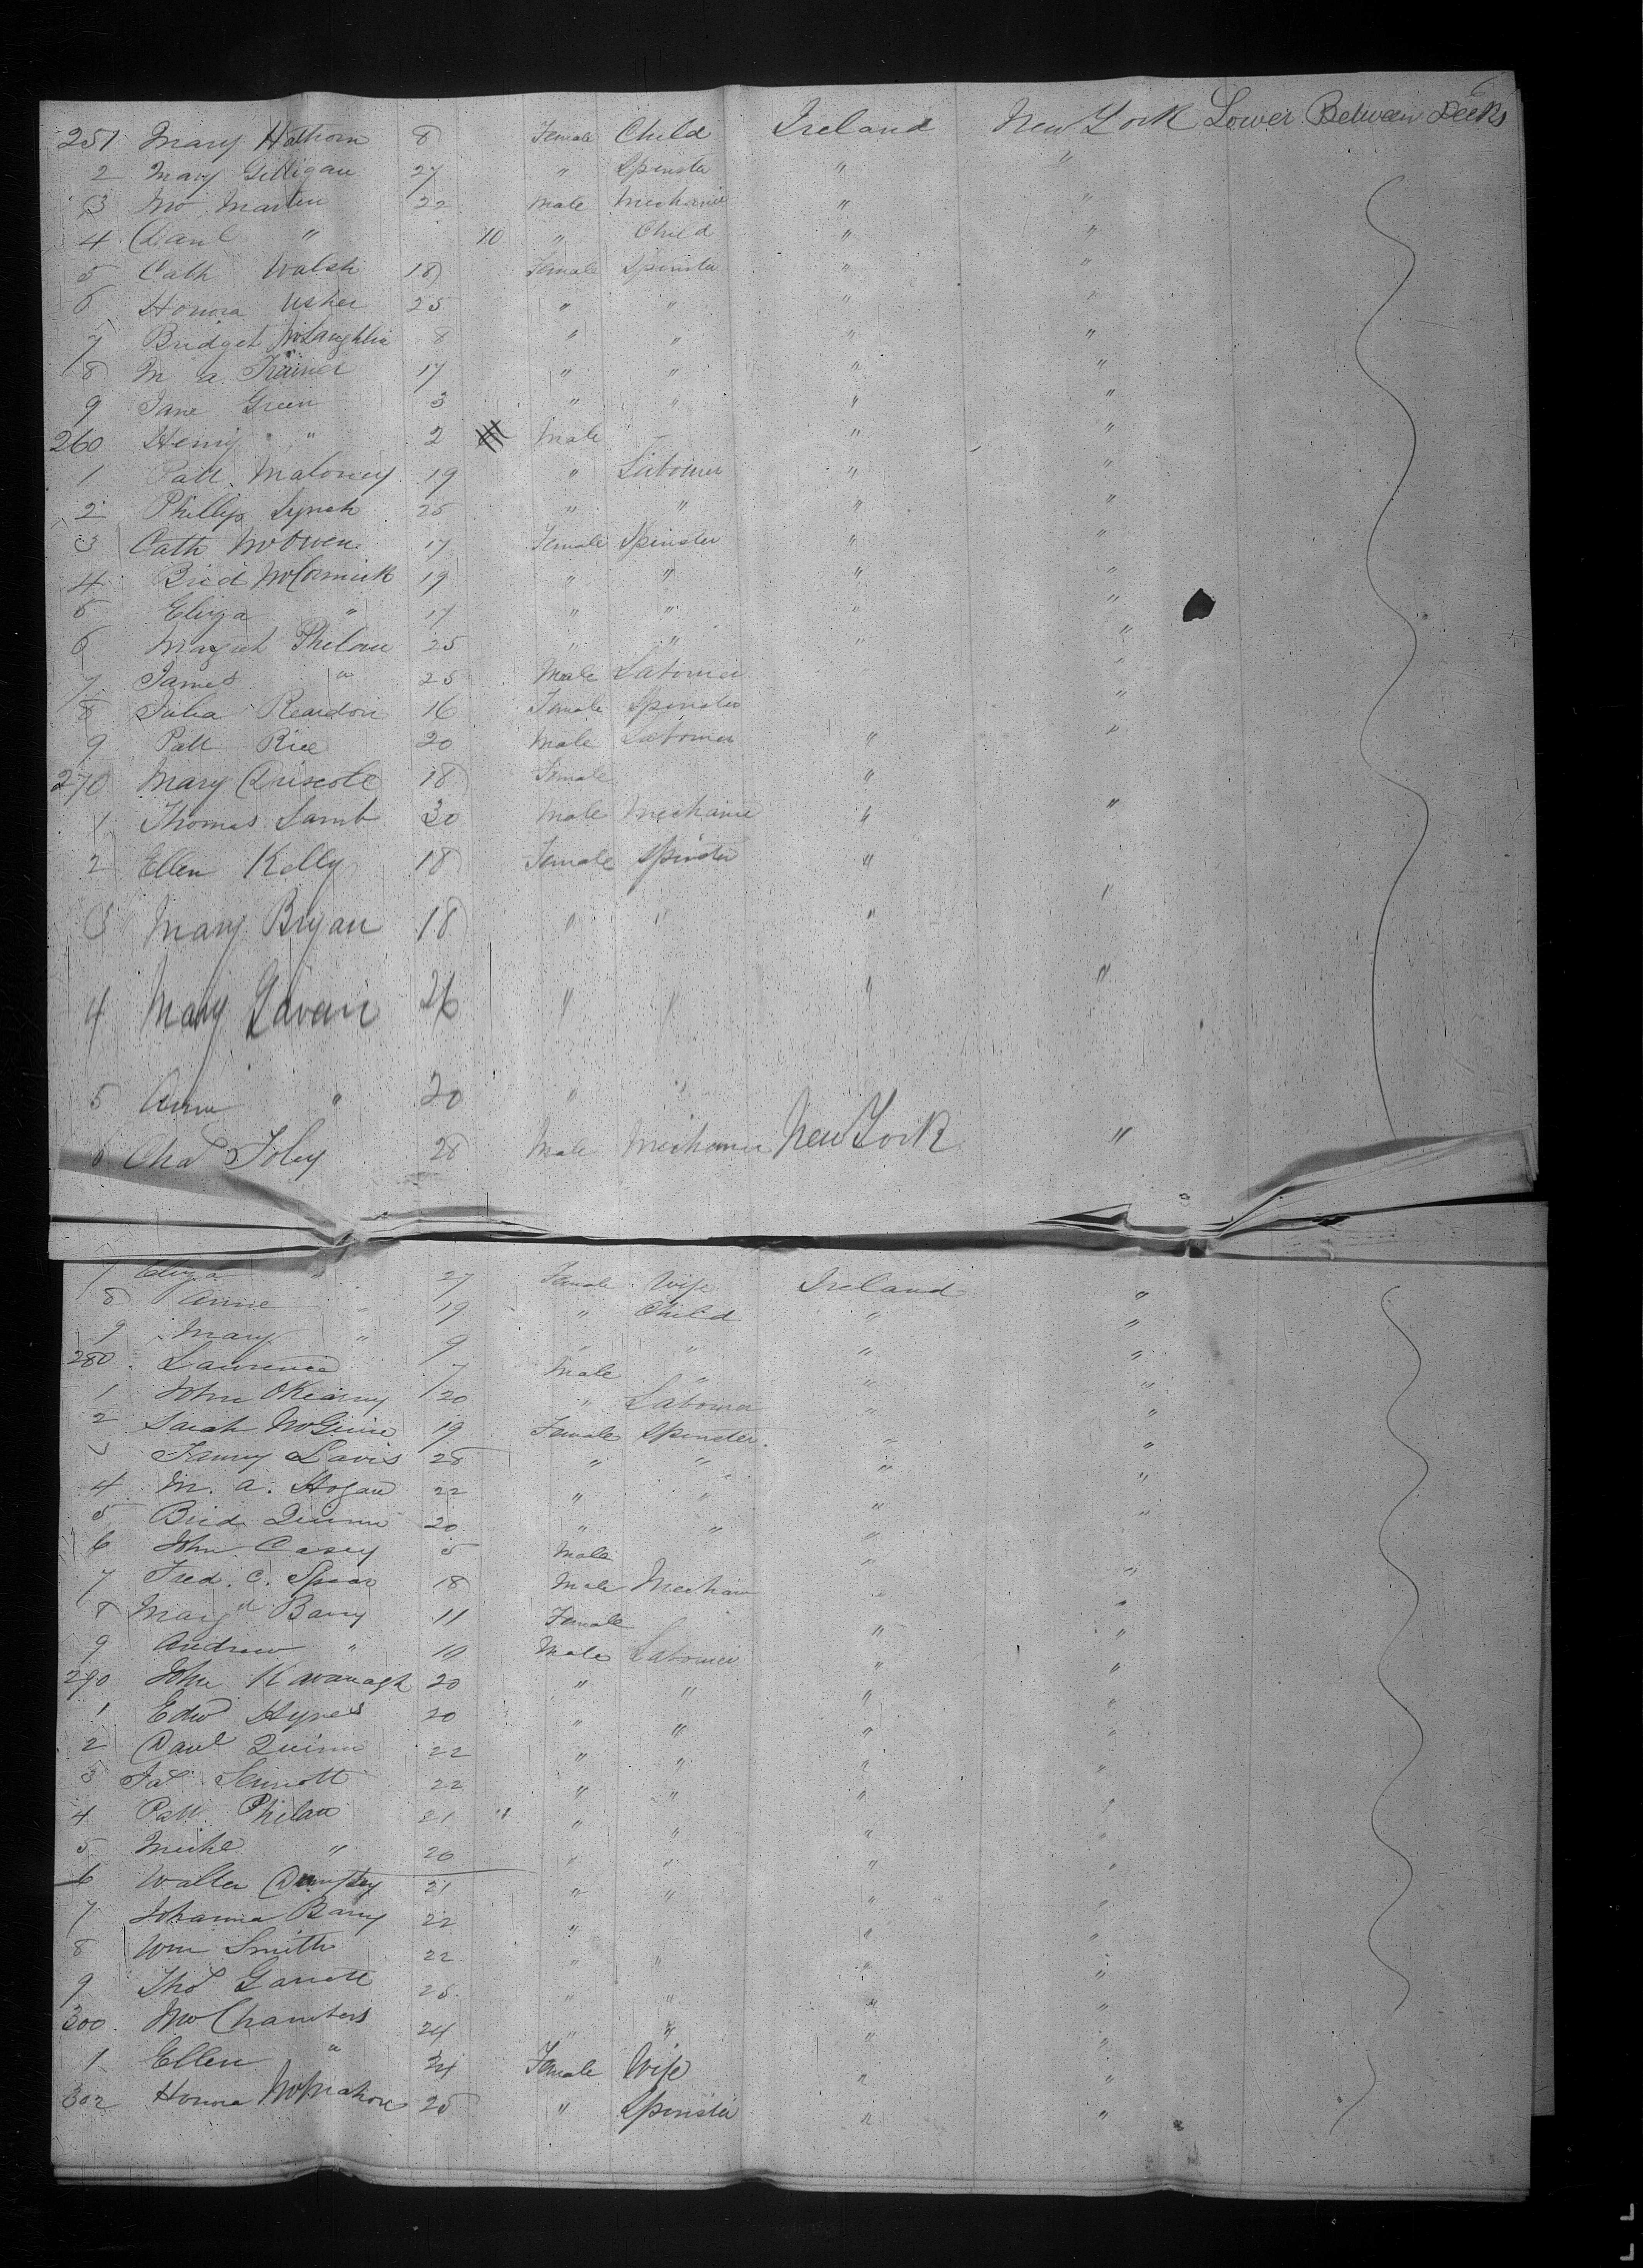 251 Mary Hathorn 8 Female Child Ireland New York Lower Between Decks
2 Mary Gilligan 27 " Spinster " "
3 Jno Marten 22 Male Mechanic " "
4 Danl " 10 " Child " "
5 Cath Walsh 18 Female Spinster " "
6 Honora Usher 25 " " " "
7 Bridget McLaughlin 8 " " " "
8 M a Trainer 17 " " " "
9 Jane Green 3 " " " "
260 Henry " 2 Male " "
1 Patt Maloney 19 " Labourer " "
2 Phillip Lynch 25 " " " "
3 Cath McOwen 17 Female Spinster " "
4 Brid McCormick 19 " " " "
5 Eliza " 17 " " " "
6 Phelan 25 " " " "
7 James " 25 Male Labourer "
8 Julia Reardon 16 Female Spinster "
9 Patt Rice 20 Male Labourer " "
270 Mary Driscoll 18 Female "
1 Thomas Lamb 30 Male Mechanic " "
2 Ellen Kelly 18 Female Spinster "
3 Mary Bryan 18 " " " "
4 Mary Gavan 26 " " " "
5 Anne " 20 " "
6 Chas Foley 28 Male Mechanic New York "
7 Eliza " 27 Female Wife Ireland "
8 Anne " 19 " Child " "
9 Mary " 9 " " " "
280 Laurence 7 Male " " "
1 John OKearny 20 " Labourer " "
2 Sarah McGuire 19 Female Spinster " "
3 Fanny Davis 28 " " " "
4 M. a. Hogan 22 " " " "
5 Brid Quinn 20 " " " "
6 John Casey 5 Male " "
7 Fred. C. Spear 18 Male Mechan " "
8 Margt Barry 11 Female " "
9 Andrew " 10 Male Labourer " "
290 John Kavanagh 20 " " " "
1 Edwd Hynes 20 " " " "
2 Danl Quinn 22 " " " "
3 Jas Sennott 22 " " " "
4 Patt Phelan 21 " " " " "
5 Michl " 20 " " " "
6 Walter Dempsey 21 " " " "
7 Johanna Barry 22 " " "
8 Wm Smith 22 " " " "
9 Thos Garrett 25 " " " "
300 Jno Chambers 24 " " " "
1 Ellen " 24 Female Wife " "
302 Honora McMahon 25 " Spinster " "